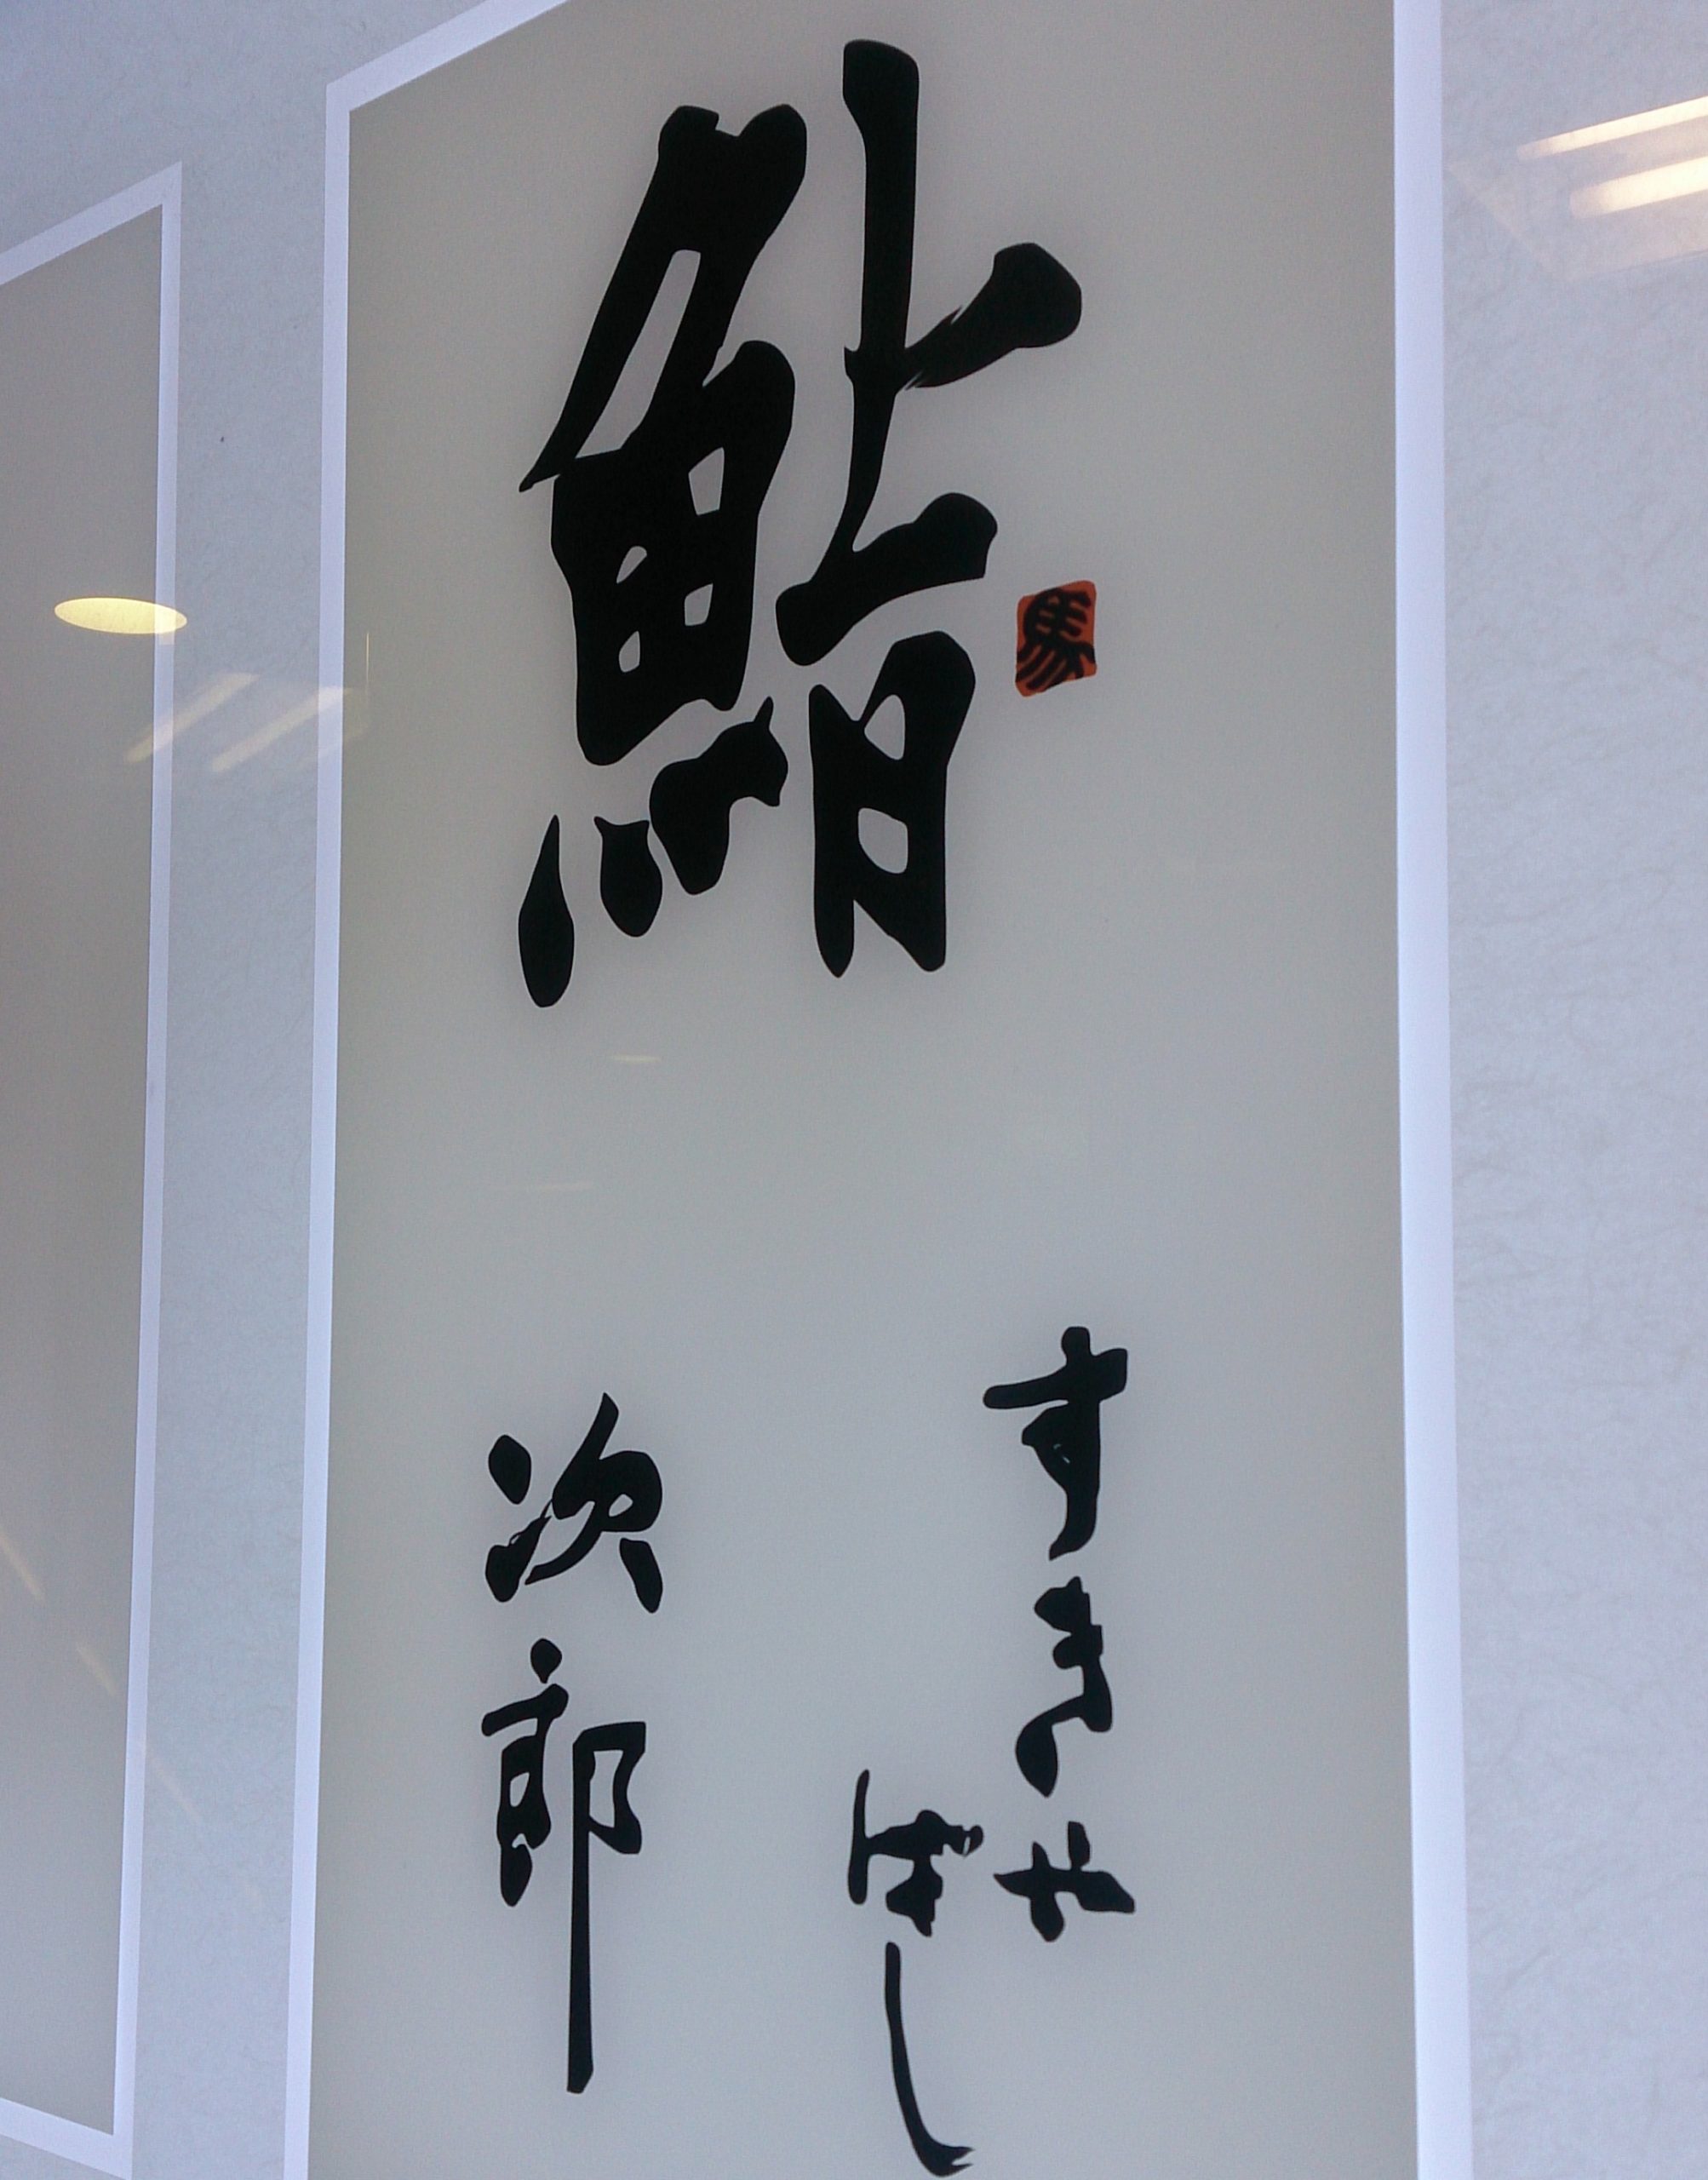 鮨
馬
すきや
ばし
次郎